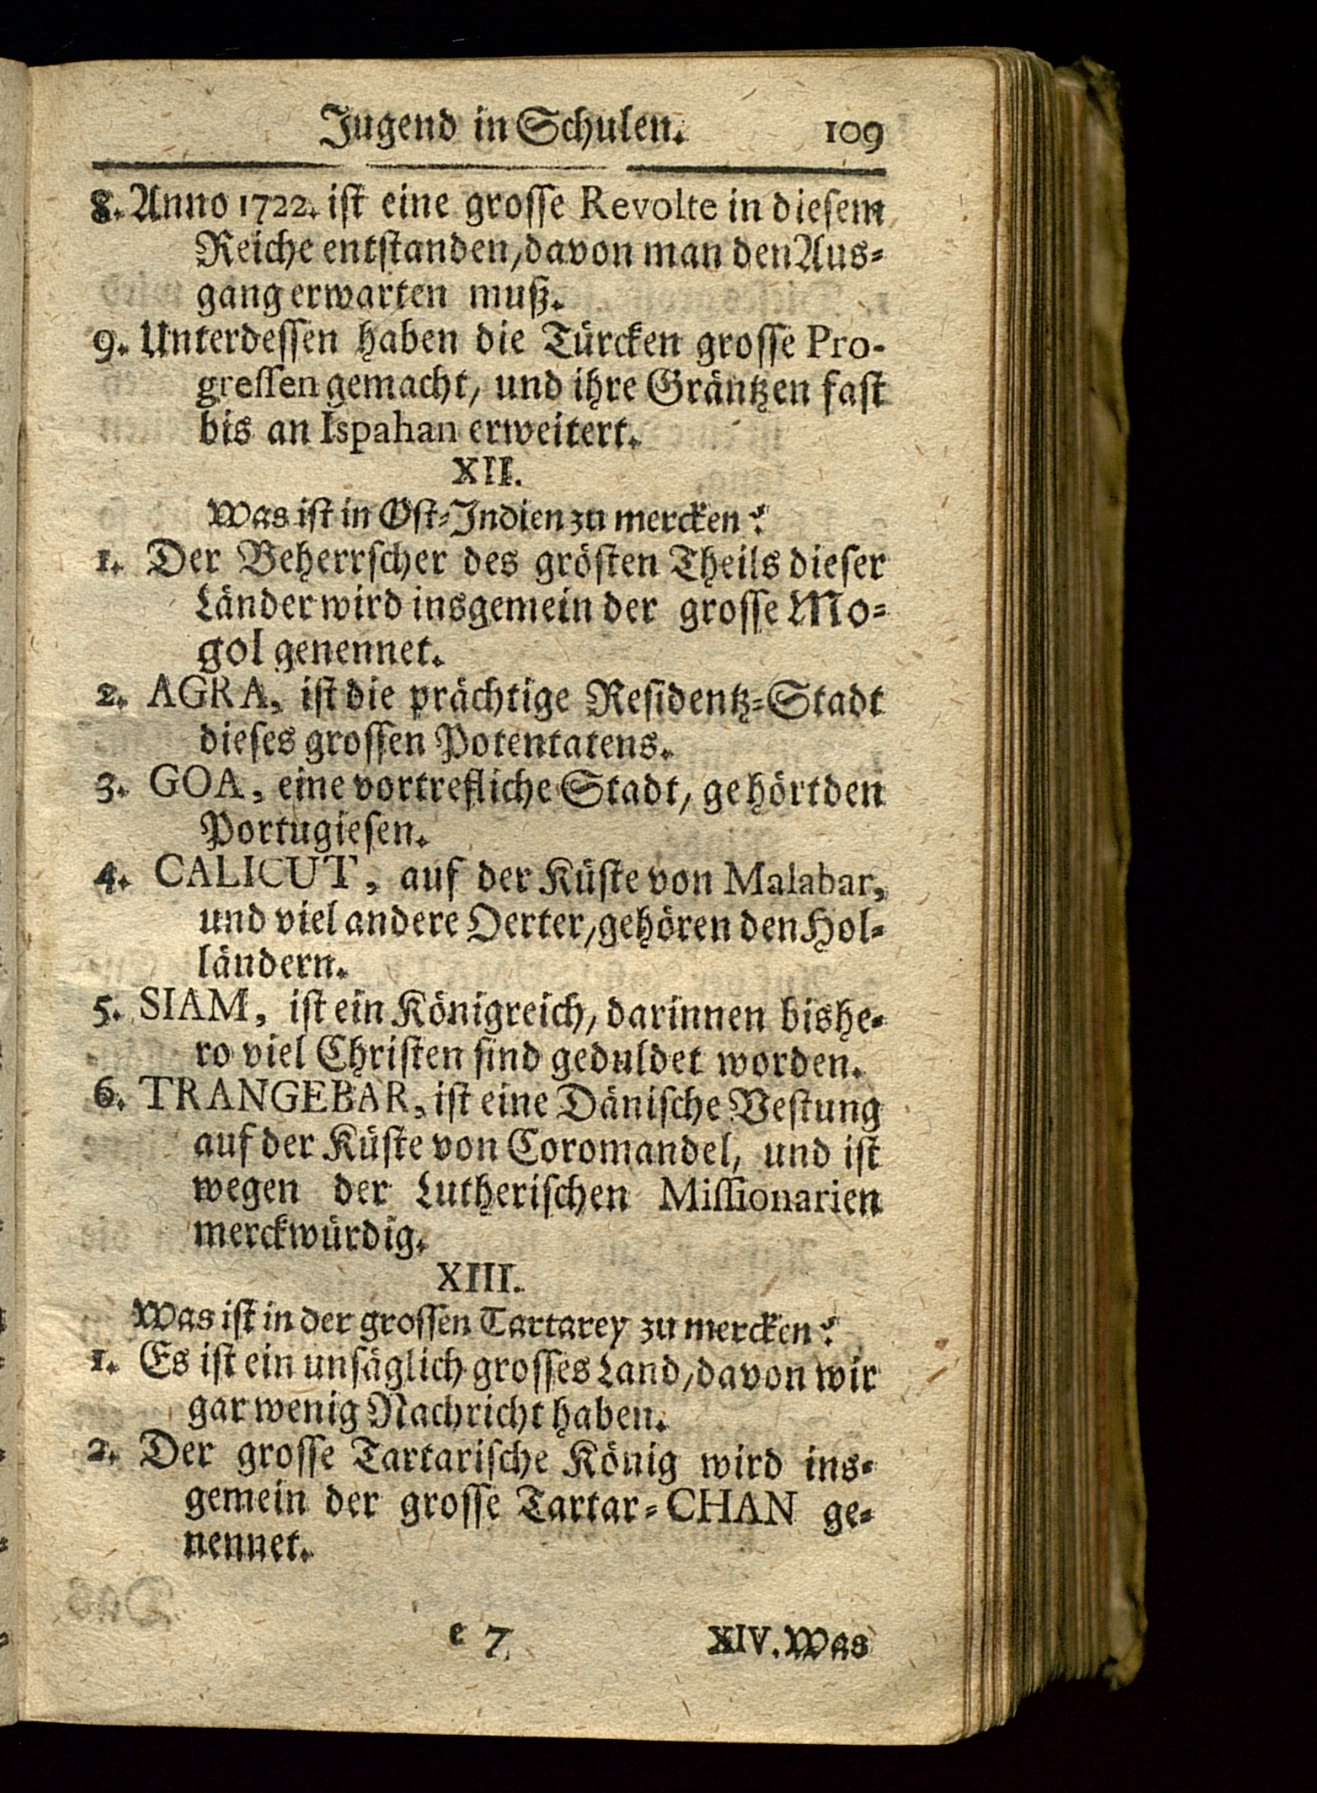 Jugend in Schulen. 109
8. Anno 1722. ist eine grosse Revolte in diesem
Reiche entstanden, davon man den Aus-
gang erwarten muß.
9. Unterdessen haben die Türcken grosse Pro-
gressen gemacht, und ihre Gräntzen fast
bis an Ispahan erweitert.
XII.
Was ist in Ost-Indien zu mercken?
1. Der Beherrscher des grösten Theils dieser
Länder wird insgemein der grosse Mo-
gol genennet.
2. AGRA, ist die prächtige Residentz-Stadt
dieses grossen Potentatens.
3. GOA, eine vortrefliche Stadt, gehört den
Portugiesen.
4. CALICUT, auf der Küste von Malabar,
und viel andere Oerter, gehören den Hol-
ländern.
5. SIAM, ist ein Königreich, darinnen bishe-
ro viel Christen sind geduldet worden.
6. TRANGEBAR, ist eine Dänische Vestung
auf der Küste von Coromandel, und ist
wegen der Lutherischen Missionarien
merckwürdig.
XIII.
Was ist in der grossen Tartarey zu mercken?
1. Es ist ein unsäglich grosses Land, davon wir
gar wenig Nachricht haben.
2. Der grosse Tartarische König wird ins-
gemein der grosse Tartar-CHAN ge-
nennet.
e 7 XIV. Was